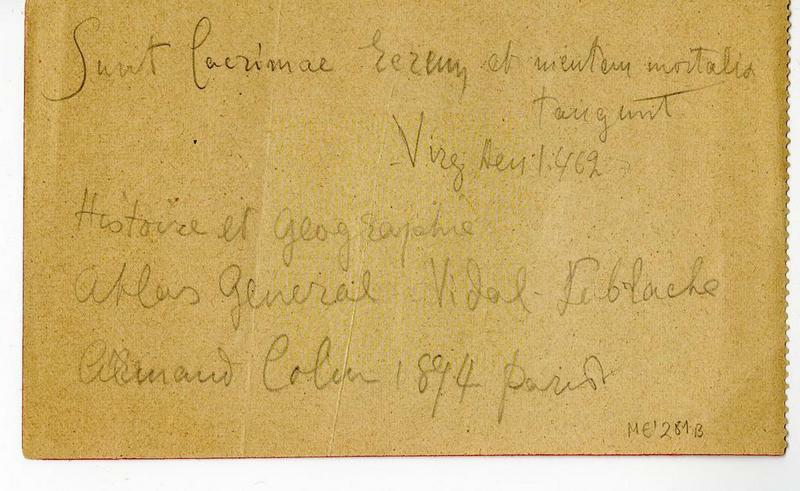 Sunt lacrimae rerum et mentem mortalia
tangunt
Virg Aen 1.462
Histoire et Geographie
Atlas General Vidal-Leblache
Armand Colin 1894 paris
ME'281B